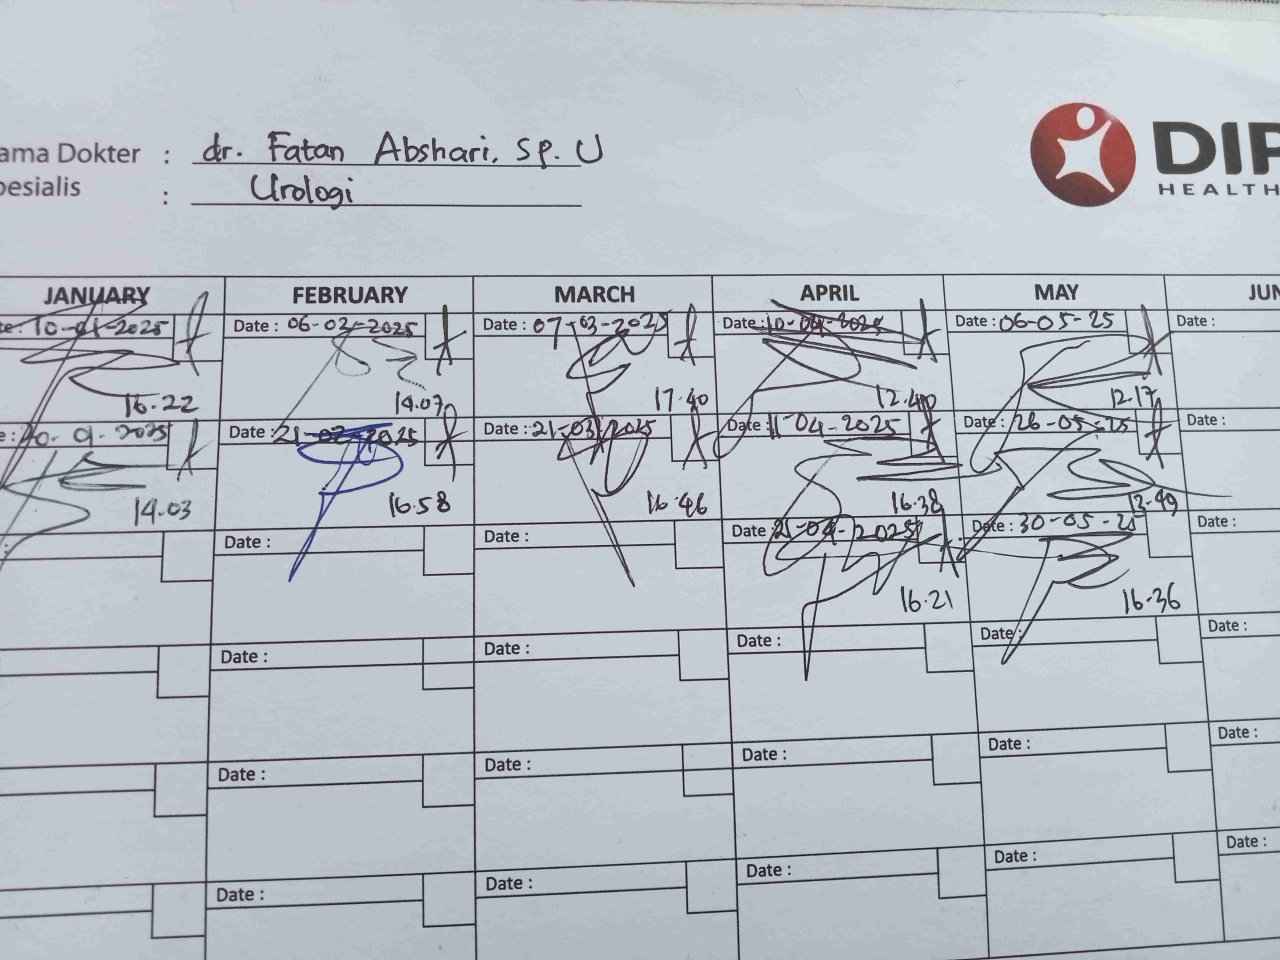 ama Dokter : dr. Fatan Abshari, Sp. U
pesialis : Urologi
DIP
HEALTH
JANUARY FEBRUARY MARCH APRIL MAY JUN
te: 10-01-2025 Date : 06-02-2025 Date : 07-03-2025 Date : 10-04-2025 Date : 06-05-25 Date :
16.22 14.07 17.40 12.40 12.17
e : 2025 Date : 21-02-2025 Date : 21-03-2025 Date : 11-04-2025 Date : 26-05-25 Date :
14.03 16.58 16.46 16.38 13.49
: Date : Date : Date : 21-04-2025 Date : 30-05-25 Date :
16.21 16.36
Date : Date : Date : Date : Date :
Date : Date : Date : Date : Date :
Date : Date : Date : Date : Date :